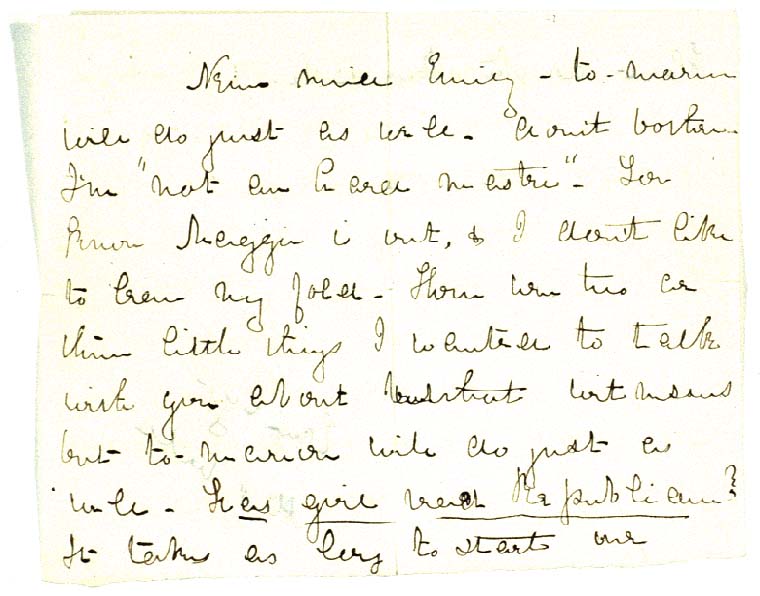 Never mind Emily - to-morrow
will do just as well. Don't bother
I'm "not an hard master" - You
know Maggie is out, & I don't like
to leave my fold - There were two or
three little things I wanted to talk
with you about without witnesses
but to-morrow will do just as
well - Has girl read Republican?
It takes as long to start our